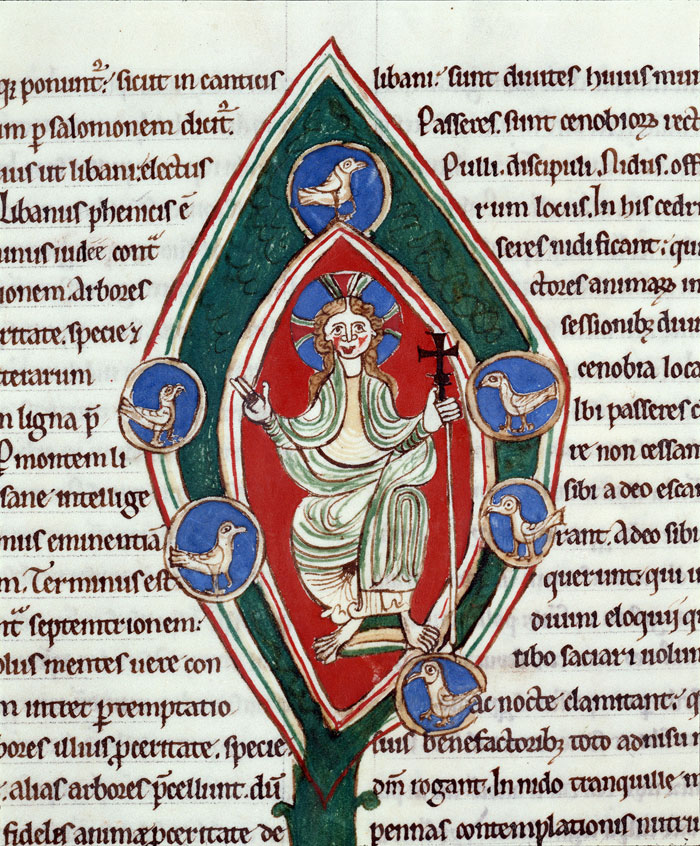 qꝫ ponunt᷑: sicut in canticis
um ꝑ salomonem dicit᷑.
ius ut libani: electus
Libanus phenicis ē
minus iudee contͣ
ionem. Arbores
ritate. specie ⁊
tterarum
n ligna p̄
P montem li
sane intellige
mus eminentiā
m. Terminus est
ntͣ septemtrionem:
olus mentes uere con
m ꝑ temptatio
bores illius ꝓceritate. specie
. alias arbores p̄cellunt. dū
fideles animæ ꝓceritate de
libani: sunt diuites huius mun
Passeres. sunt cenobioꝝ rect
Pulli. discipuli. Nidus. off
rum locus. In his cedri
seres nidificant: qui
ctores animaꝝ in
sessionibꝫ diui
cenobia loca
Ibi passeres c
re non cessan
sibi a deo escar
rant. A deo sibi
querunt: qui ui
diuini eloquij q
cibo saciari uolun
ac nocte clamitant: q
suis benefactoribꝫ toto adnisu
dm̄ rogant. In nido tranquille
pennas contemplationis nutriu